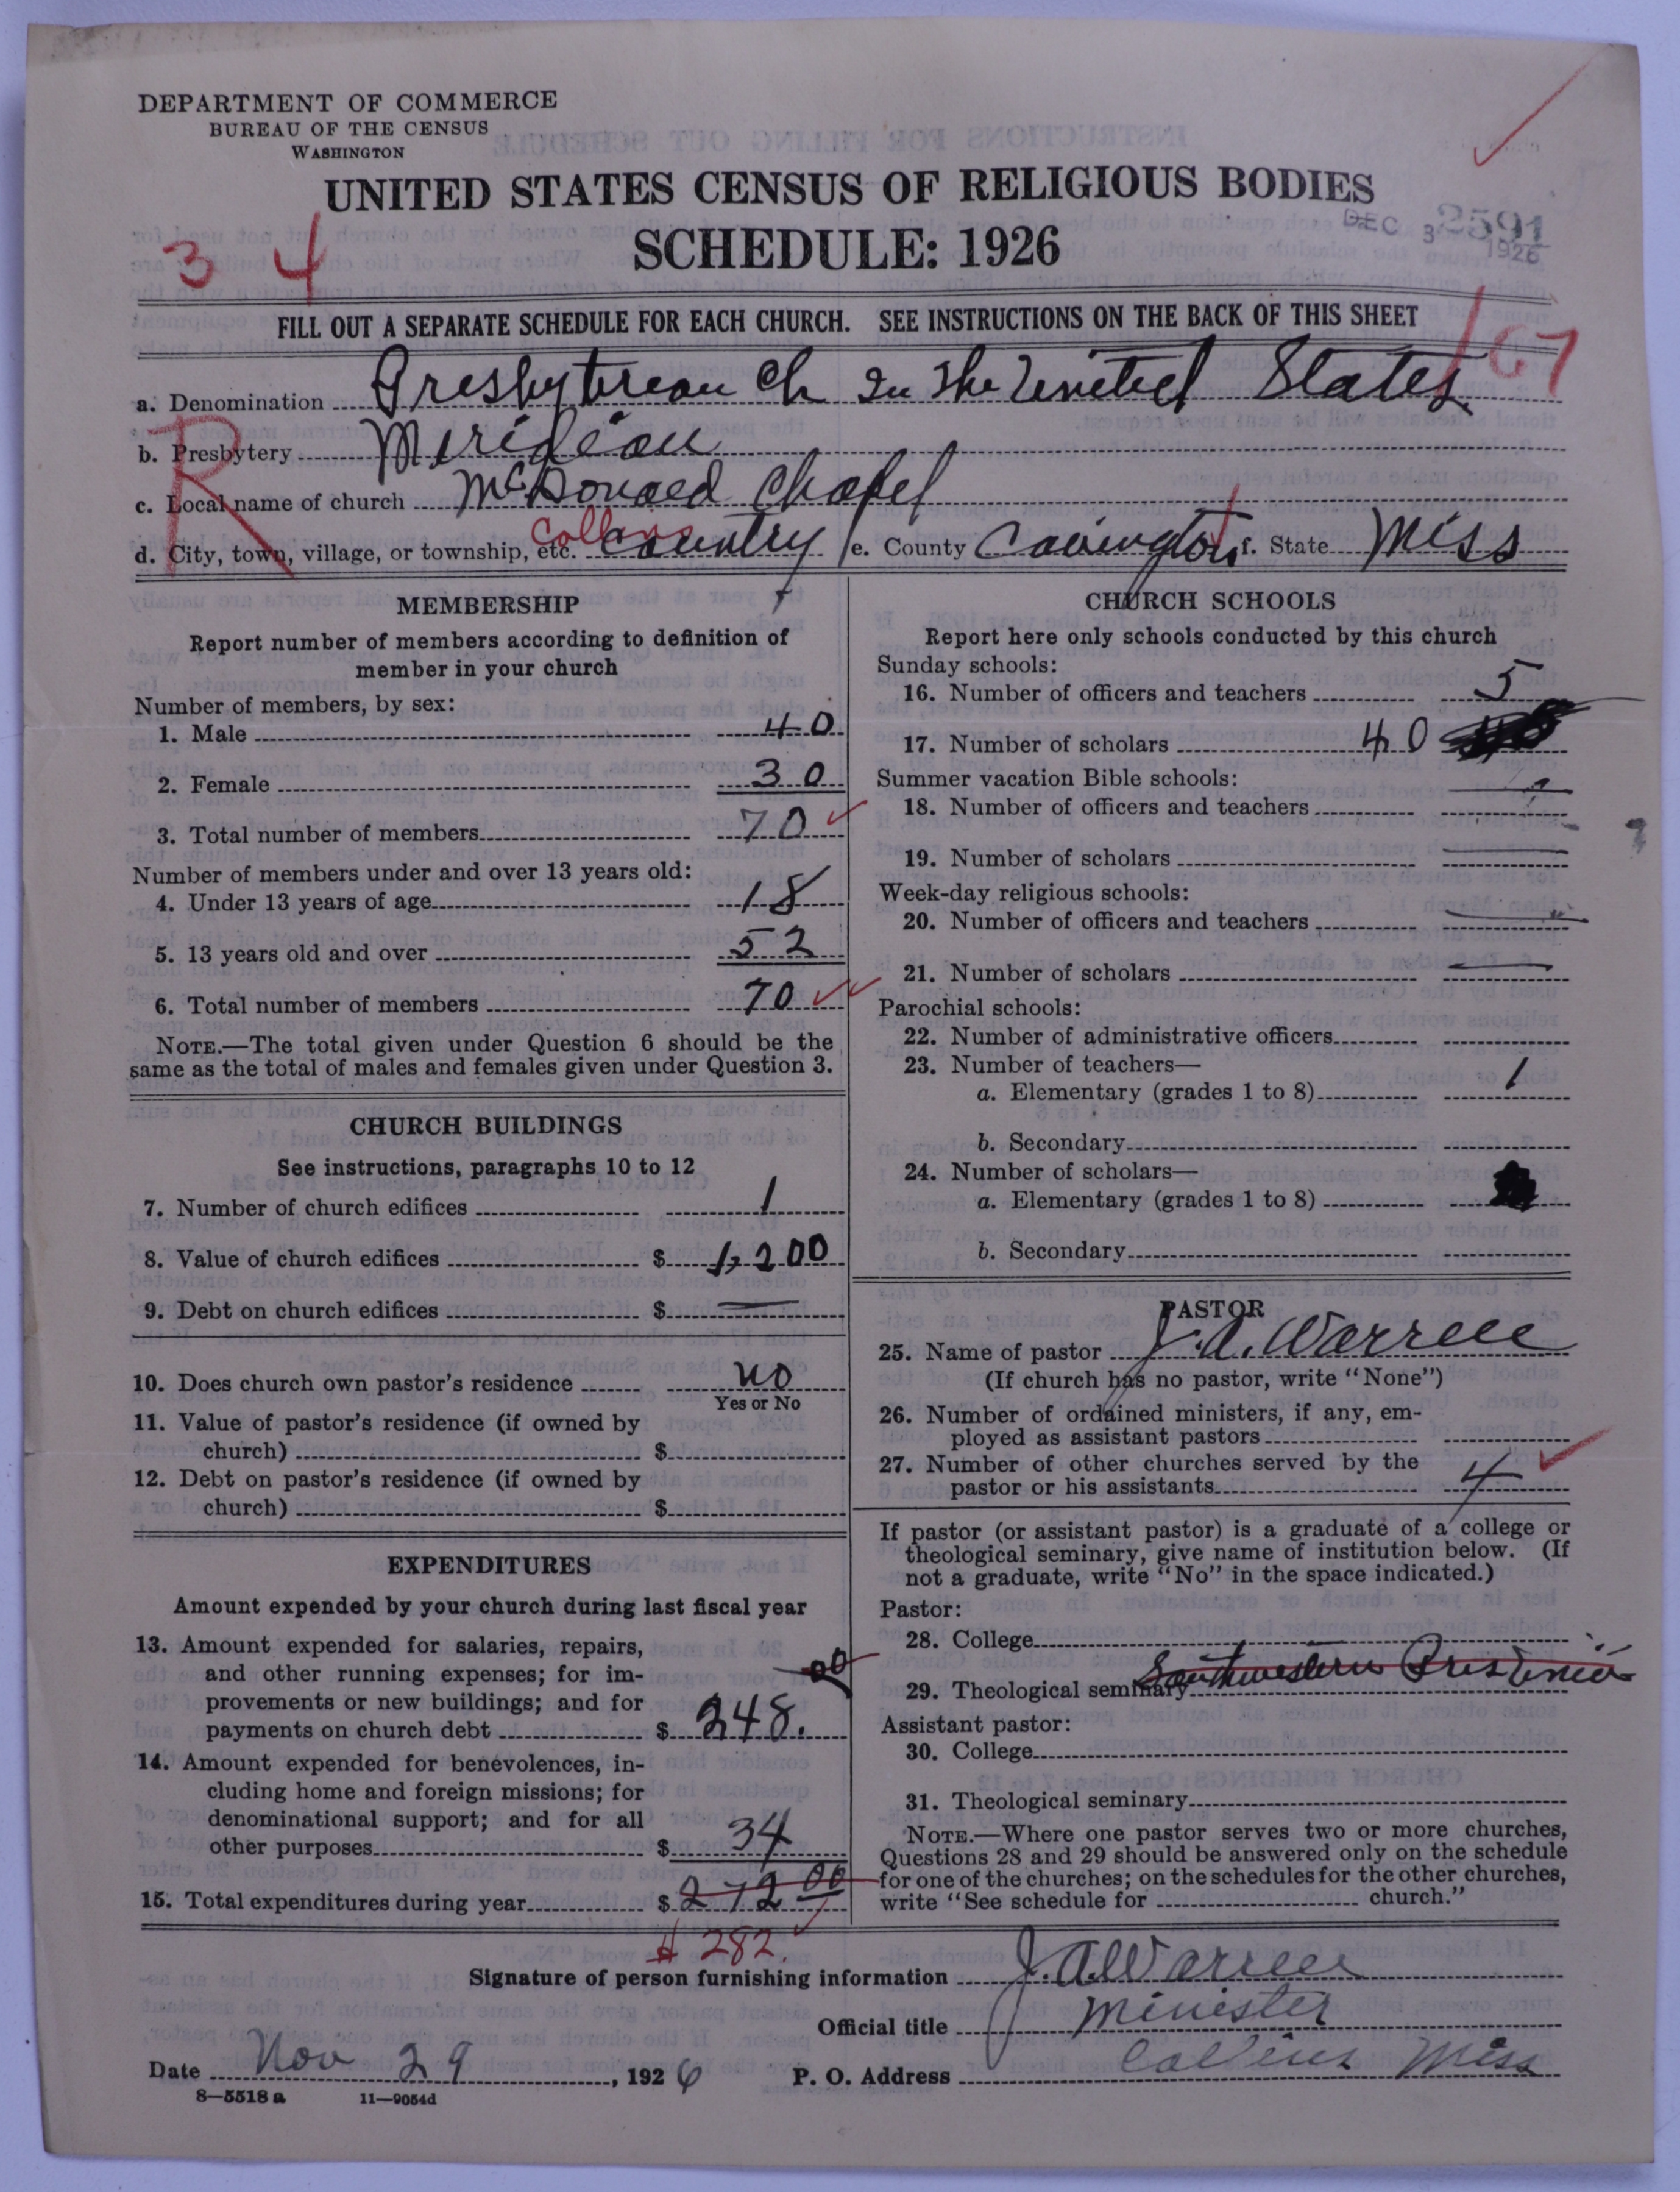 DEPARTMENT OF COMMERCE
BUREAU OF THE CENSUS
WASHINGTON
UNITED STATES CENSUS OF RELIGIOUS BODIES
SCHEDULE: 1926
DEC 3 1926
2591
3 4
FILL OUT A SEPARATE SCHEDULE FOR EACH CHURCH. SEE INSTRUCTIONS ON THE BACK OF THIS SHEET
167
a. Denomination Presbyterean Ch In The United States
b. Presbytery Meridean
R
c. Local name of church McDonald Chapel
d. City, town, village, or township, etc. Collins Country e. County Covington f. State Miss
MEMBERSHIP
Report number of members according to definition of
member in your church
Number of members, by sex:
1. Male 40
2. Female 30
3. Total number of members 70
Number of members under and over 13 years old:
4. Under 13 years of age 18
5. 13 years old and over 52
6. Total number of members 70
NOTE.—The total given under Question 6 should be the
same as the total of males and females given under Question 3.
CHURCH BUILDINGS
See instructions, paragraphs 10 to 12
7. Number of church edifices 1
8. Value of church edifices $ 1,200
9. Debt on church edifices $ —
10. Does church own pastor's residence no
Yes or No
11. Value of pastor's residence (if owned by
church) $
12. Debt on pastor's residence (if owned by
church) $
EXPENDITURES
Amount expended by your church during last fiscal year
13. Amount expended for salaries, repairs,
and other running expenses; for im-
provements or new buildings; and for
payments on church debt $ 248.00
14. Amount expended for benevolences, in-
cluding home and foreign missions; for
denominational support; and for all
other purposes $ 34
15. Total expenditures during year $ 272 00
$ 282.
CHURCH SCHOOLS
Report here only schools conducted by this church
Sunday schools:
16. Number of officers and teachers 5
17. Number of scholars 40
Summer vacation Bible schools:
18. Number of officers and teachers —
19. Number of scholars —
Week-day religious schools:
20. Number of officers and teachers —
21. Number of scholars —
Parochial schools:
22. Number of administrative officers
23. Number of teachers—
a. Elementary (grades 1 to 8) 1
b. Secondary
24. Number of scholars—
a. Elementary (grades 1 to 8)
b. Secondary
PASTOR
25. Name of pastor J. A. Warren
(If church has no pastor, write "None")
26. Number of ordained ministers, if any, em-
ployed as assistant pastors
27. Number of other churches served by the
pastor or his assistants 4
If pastor (or assistant pastor) is a graduate of a college or
theological seminary, give name of institution below. (If
not a graduate, write "No" in the space indicated.)
Pastor:
28. College
29. Theological seminary Southwestern Pres
Assistant pastor:
30. College
31. Theological seminary
NOTE.—Where one pastor serves two or more churches,
Questions 28 and 29 should be answered only on the schedule
for one of the churches; on the schedules for the other churches,
write "See schedule for church."
Signature of person furnishing information J. A. Warren
Official title Minister
Date Nov 29, 1926 P. O. Address Collins Miss
8—5518 a 11—9054d